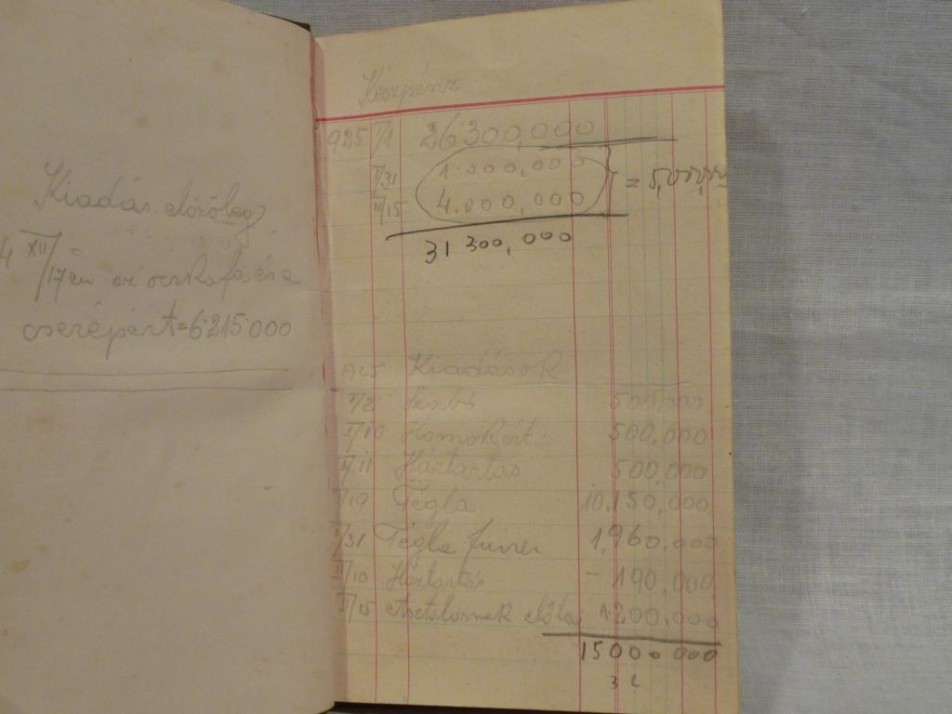 Kiadás előzőleg
4 XII/17én az ócskafa és a
cserépért=6'215'000
Készpénz
925 I/1 26'300,000
I/31 1.000,000
II/15 4.000,000
= 5,000,000
31 300,000
1925 Kiadások
I/2 Szabó 500,000
I/10 Homokért 500,000
I/11 Háztartás 500,000
I/19 Tégla 10.150,000
I/31 Tégla fuvar 1,960,000
II/10 Háztartás - 190,000
II/15 Asztalosnak előleg 1200,000
15000 000